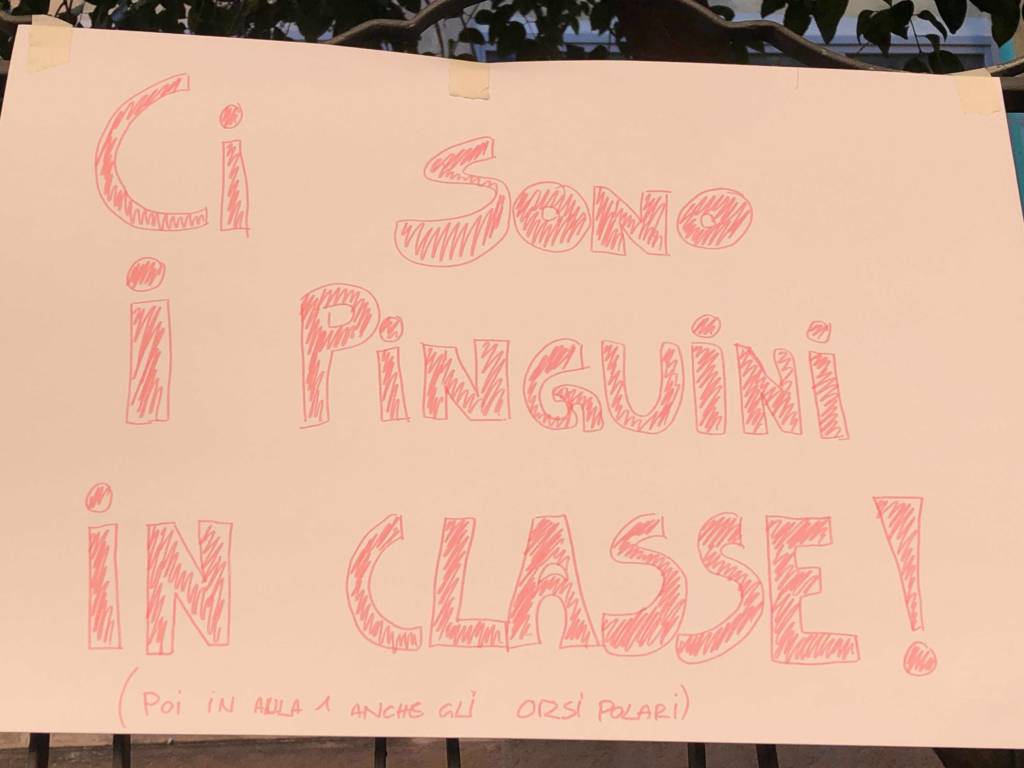 Ci SONO
i PiNGUiNi
iN CLASSE!
(Poi iN AULA 1 ANCHE GLi ORSi POLARi)